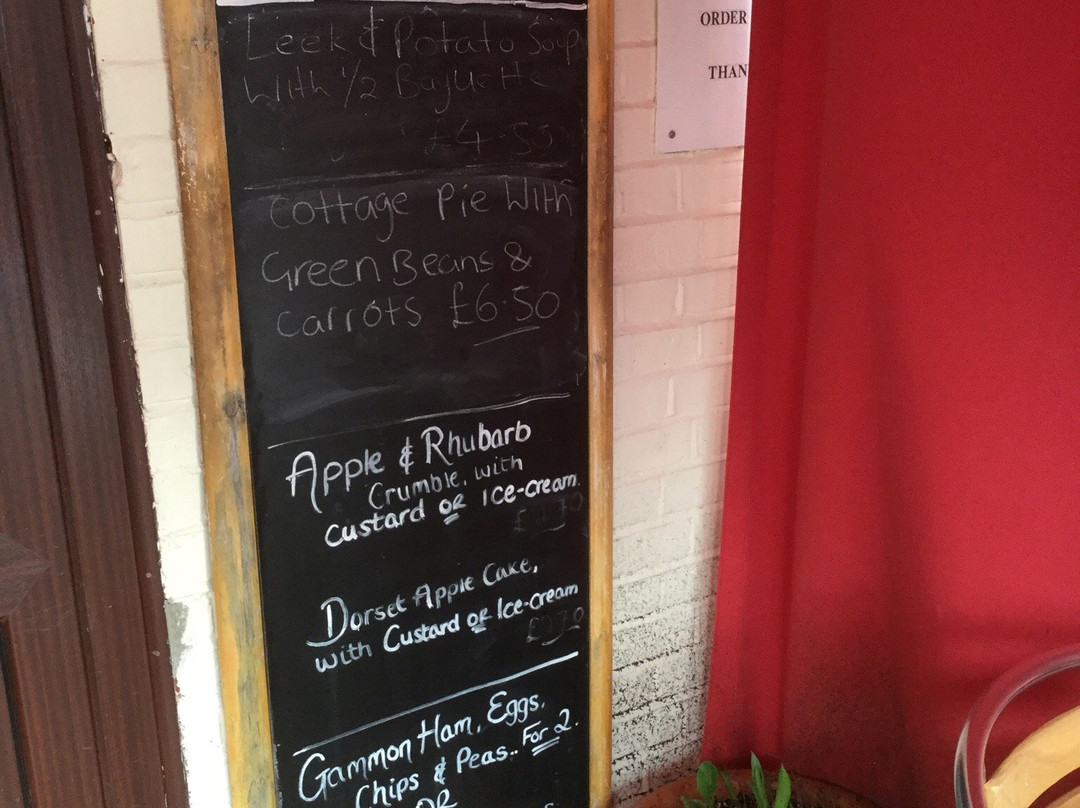 Leek & Potato Soup
With 1/2 Baguette
£4.50
Cottage Pie With
Green Beans &
Carrots £6.50
Apple & Rhubarb
Crumble, with
Custard OR Ice-cream.
Dorset Apple Cake,
with Custard OR Ice-cream
Gammon Ham, Eggs,
Chips & Peas.. For 2.
OR
ORDER
THAN